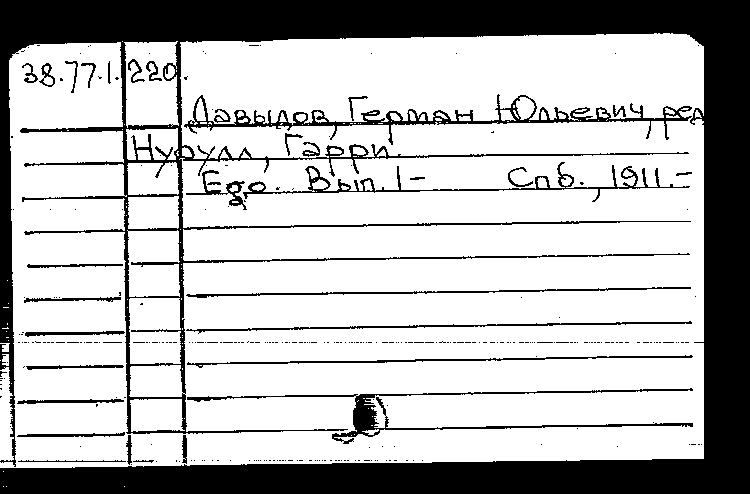 38.77.1. 220.
Давыдов, Герман Юльевич, ред
Нурулл, Гарри.
Едо. Вып. 1- Спб., 1911.-